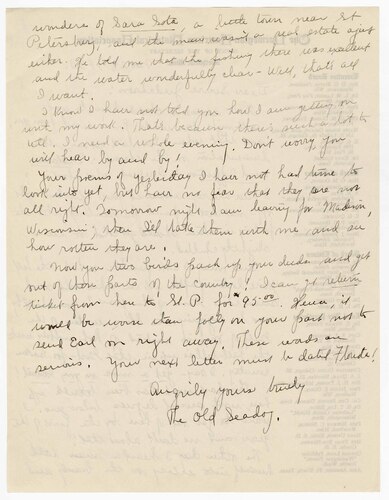 wonders of Sara Sota, a little town near St
Petersburg, and the man wasn't a real estate agent
either. He told me that the fishing there was excellent
and the water wonderfully clear - Well, that's all
I want.
I know I have not told you how I am getting on
with my work. That's because there's such a lot to
tell. I need a whole evening. Don't worry, you
will hear by and by!
Your poems of yesterday I have not had time to
look into yet, but have no fear that they are not
all right. Tomorrow night I am leaving for Madison,
Wisconsin; then I'll take them with me and see
how rotten they are.
Now you two birds pack up your duds and get
out of them parts of the country! I can get return
ticket from here to St. P. for $95.00. Hence, it
would be worse than folly on your part not to
send Earl on right away. These words are
serious. Your next letter must be dated Florida!
Angrily yours truly
The Old Seadog.